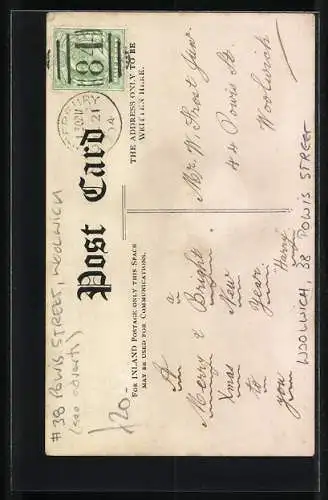 Post Card
FOR INLAND POSTAGE ONLY THIS SPACE
MAY BE USED FOR COMMUNICATIONS.
THE ADDRESS ONLY TO BE
WRITTEN HERE.
A
Merry & Bright
Xmas
to
you
a
New
Year.
"Harry"
Mr. W. Frost Junr.
44 Powis St.
Woolwich
WOOLWICH, 38 POWIS STREET
#38 POWIS STREET, WOOLWICH
120-
81
21
04